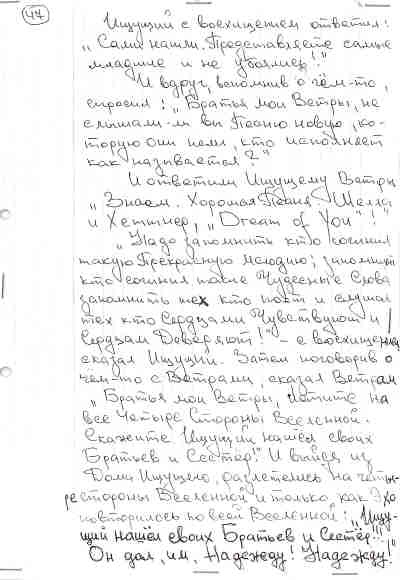 47
Ищущий с восхищением ответил:
„Сами нашли. Представляете самые
младшие и не убоялись!"
И вдруг, вспомнив о чём-то,
спросил: „Братья мои Ветры, не
слышали-ли вы Песню новую, ко-
торую они пели, кто исполняет
как называется?"
И ответили Ищущему Ветры
„Знаем. Хорошая Песня.
и „Dream of You"!"
„Надо запомнить кто сочинил
такую Прекрасную Мелодию; запомнить
кто сочинил такие Чудесные Слова
запомнить тех кто поёт и слушал
тех кто Сердцами Чувствуют и
Сердцам Доверяют!" – с восхищением
сказал Ищущий. Затем поговорив о
чём-то с Ветрами, сказал Ветрам
„Братья мои Ветры, летите на
все Четыре Стороны Вселенной.
Скажите Ищущий нашёл своих
Братьев и Сестёр!" И выйдя из
Дома Ищущего, разлетелись на четы-
ре стороны Вселенной и только как Эхо
повторилось по всей Вселенной: „Ищу-
щий нашёл своих Братьев и Сестёр!!!"
Он дал, им, Надежду! Надежду!